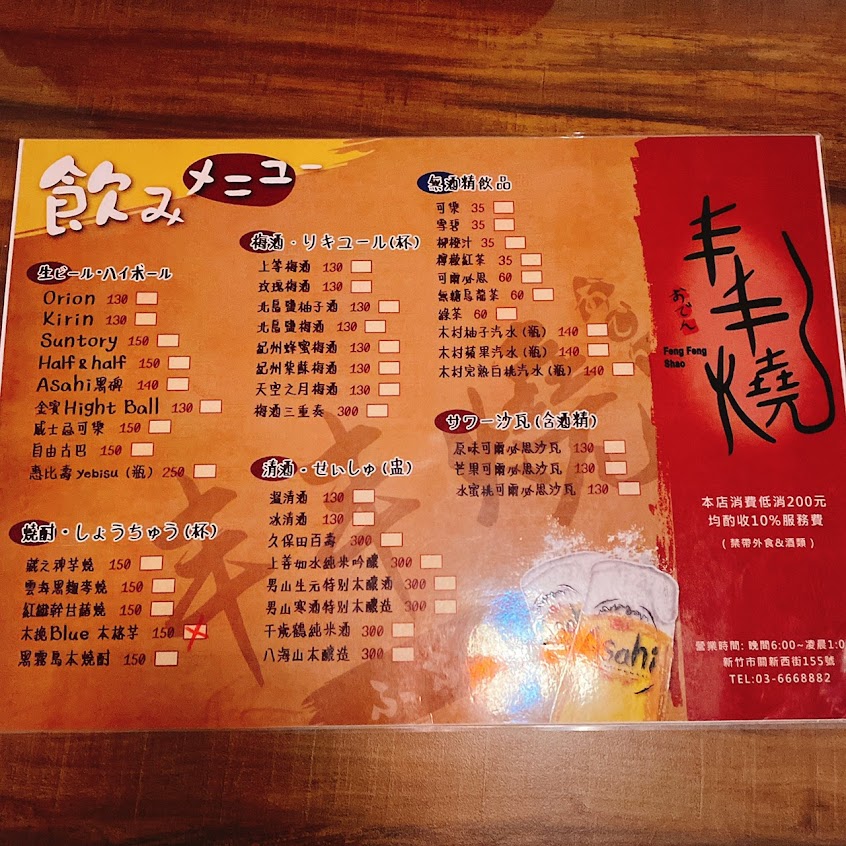 飲みメニュー
生ビール・ハイボール
Orion 130
Kirin 130
Suntory 150
Half & half 150
Asahi黑啤 140
金賓Hight Ball 130
威士忌可樂 150
自由古巴 150
惠比壽yebisu (瓶) 250
焼酎・しょうちゅう(杯)
藏之神芋燒 150
雲海黑麴麥燒 150
紅 甘藷燒 150
木挽Blue 本格芋 150
黑霧島本燒酎 150
梅酒・リキュール(杯)
上等梅酒 130
玫瑰梅酒 130
北島鹽柚子酒 130
北島鹽梅酒 130
紀州蜂蜜梅酒 130
紀州紫蘇梅酒 130
天空之月梅酒 130
梅酒三重奏 300
清酒・せいしゅ(盅)
溫清酒 130
冰清酒 130
久保田百壽 300
上善如水純米吟釀 300
男山生元特別本釀酒 300
男山寒酒特別本釀造 300
千歲鶴純米酒 300
八海山本釀造 300
無酒精飲品
可樂 35
雪碧 35
柳橙汁 35
檸檬紅茶 35
可爾必思 60
無糖烏龍茶 60
綠茶 60
木村柚子汽水(瓶) 140
木村蘋果汽水(瓶) 140
木村完熟白桃汽水(瓶) 140
サワー沙瓦(含酒精)
原味可爾必思沙瓦 130
芒果可爾必思沙瓦 130
水蜜桃可爾必思沙瓦 130
丰丰燒
おでん
Feng Feng
Shao
本店消費低消200元
均酌收10%服務費
( 禁帶外食&酒類 )
營業時間: 晚間6:00~凌晨1:0
新竹市關新西街155號
TEL:03-6668882
Asahi